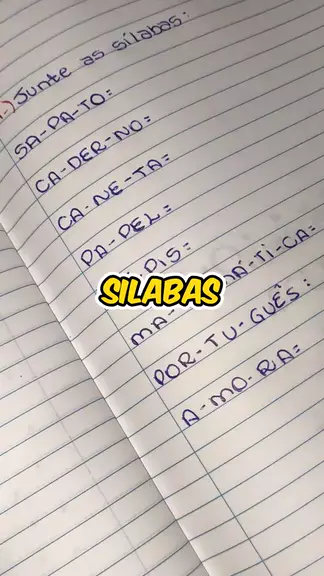 1-) Junte as sílabas:
SA-PA-TO=
CA-DER-NO=
CA-NE-TA=
PA-PEL=
PIS=
SILABAS
MA- MÁ-TI-CA=
POR-TU-GUÊS:
A-MO-RA=